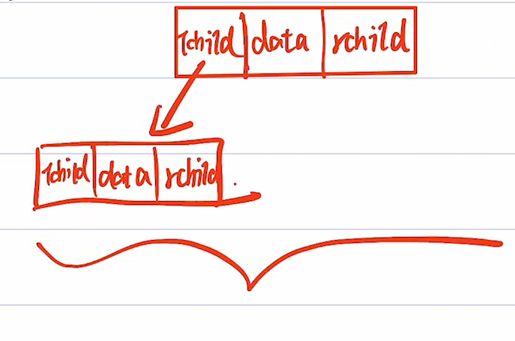 lchild data rchild
lchild data rchild